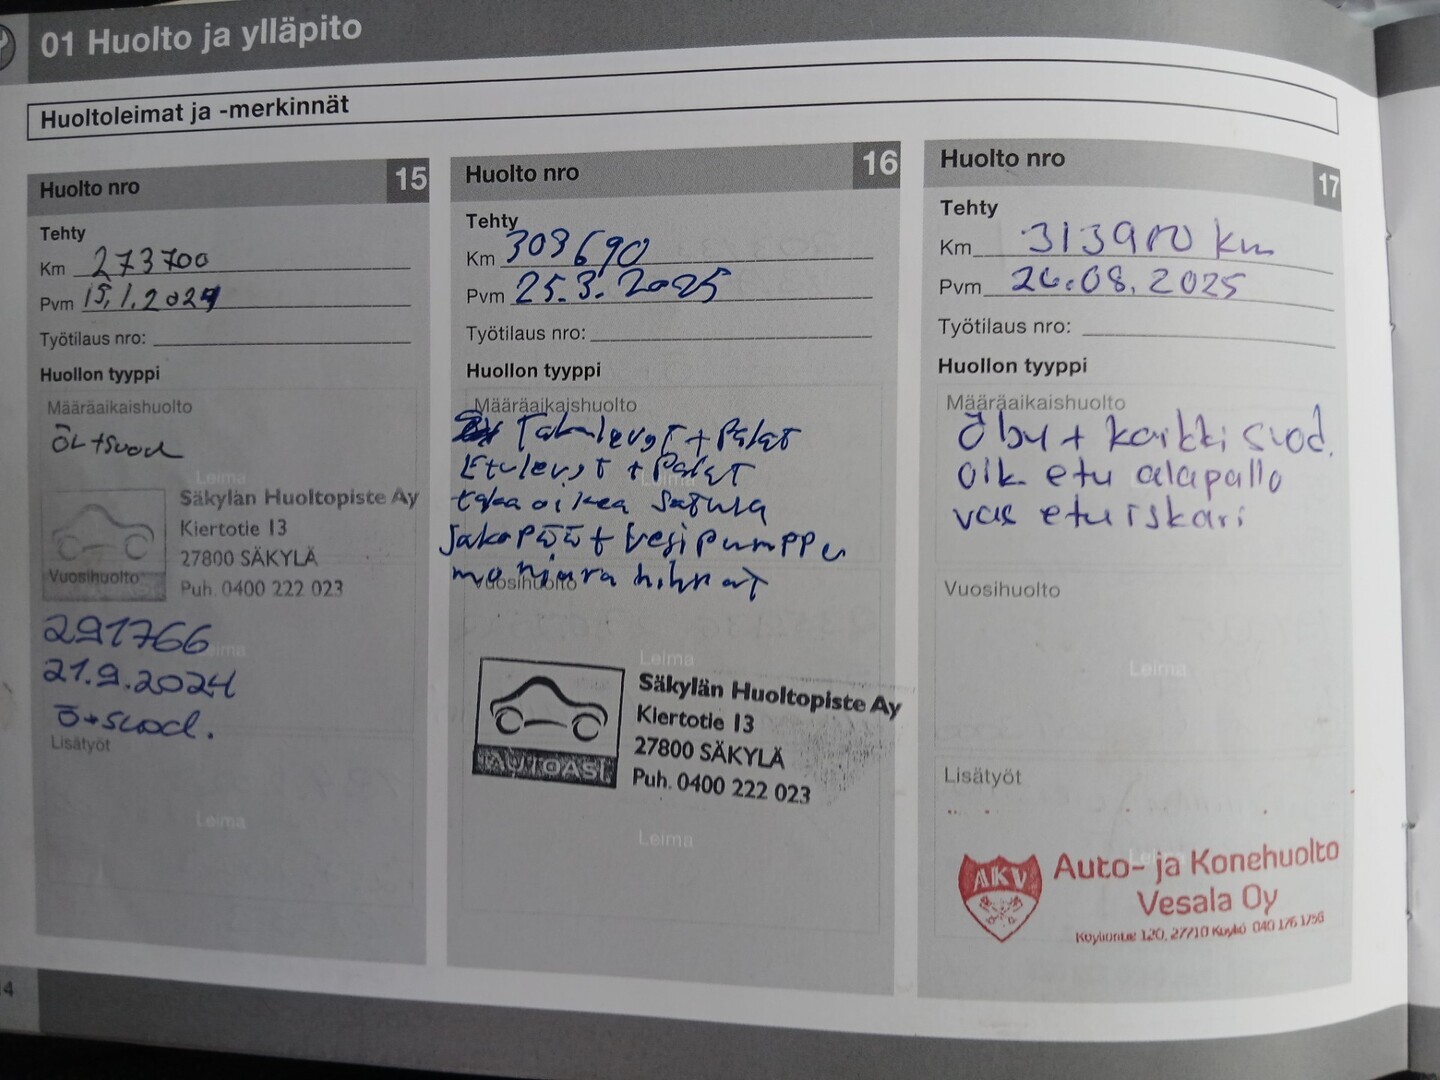 01 Huolto ja ylläpito
Huoltoleimat ja -merkinnät
Huolto nro 15
Tehty
Km 273700
Pvm 15.1.2024
Työtilaus nro:
Huollon tyyppi
Määräaikaishuolto
Öl+suod
Leima
Säkylän Huoltopiste Ay
Kiertotie 13
27800 SÄKYLÄ
Puh. 0400 222 023
Vuosihuolto
291766
Leima
21.9.2024
Ö+suod.
Lisätyöt
Leima
Huolto nro 16
Tehty
Km 309690
Pvm 25.3.2025
Työtilaus nro:
Huollon tyyppi
Määräaikaishuolto
Takalevyt + Palat
Etulevyt + Palat
taka oikea satula
Jakopää + Vesipumppu
moniura hihnat
Vuosihuolto
Leima
Säkylän Huoltopiste Ay
Kiertotie 13
27800 SÄKYLÄ
Puh. 0400 222 023
AUTOASI
Leima
Huolto nro 17
Tehty
Km 313910 km
Pvm 26.08.2025
Työtilaus nro:
Huollon tyyppi
Määräaikaishuolto
Öljy + kaikki suod.
oik etu alapallo
vas etu iskari
Vuosihuolto
Leima
Lisätyöt
Leima
AKV
Auto- ja Konehuolto
Vesala Oy
120, 27710 Köyliö 040 176 1756
14